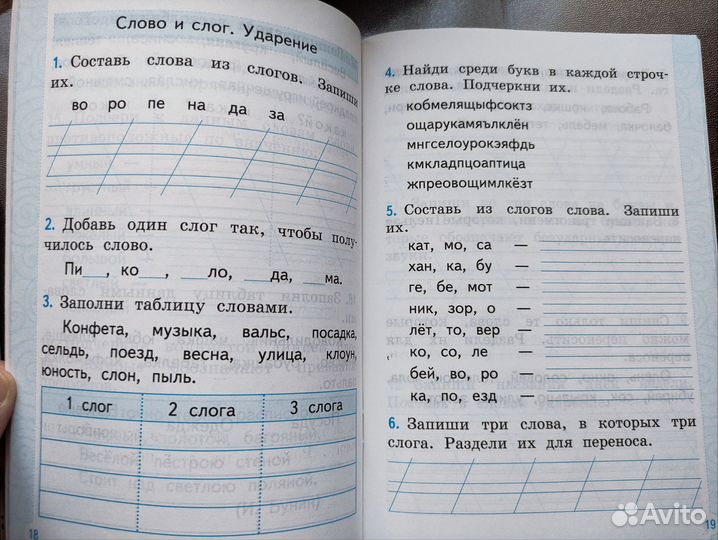 Слово и слог. Ударение
1. Составь слова из слогов. Запиши
их.
во ро пе на да за
2. Добавь один слог так, чтобы полу-
чилось слово.
Пи___, ко___, ___ло, ___да, ___ма.
3. Заполни таблицу словами.
Конфета, музыка, вальс, посадка,
сельдь, поезд, весна, улица, клоун,
юность, слон, пыль.
1 слог 2 слога 3 слога
18
4. Найди среди букв в каждой строч-
ке слова. Подчеркни их.
кобмелящыфсоктз
ощарукамяълклён
мнгселоурокэяфдь
кмкладпцоаптица
жпреовощимлкёзт
5. Составь из слогов слова. Запиши
их.
кат, мо, са —
хан, ка, бу —
ге, бе, мот —
ник, зор, о —
лёт, то, вер —
ко, со, ле —
бей, во, ро —
ка, по, езд —
6. Запиши три слова, в которых три
слога. Раздели их для переноса.
19
Avito